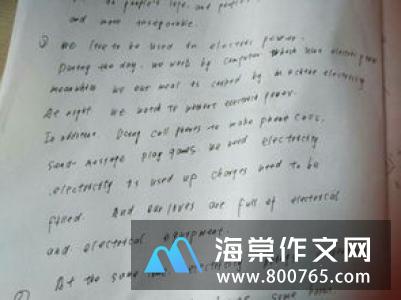 in people's life, and people
and more inseparable.
② we live to be used in electric power.
During the day, we work by computer which uses electric power
meanwhile we eat meal is cooked by machine electricity
At night. We watch tv without electronic power.
In addition. Using cell phones to make phone calls,
send message play games we need electricity
electricity is used up charges need to be
filled. And our lives are full of electrical
and electrical equipment.
At the same time. electricity
海棠作文网
www.800765.com